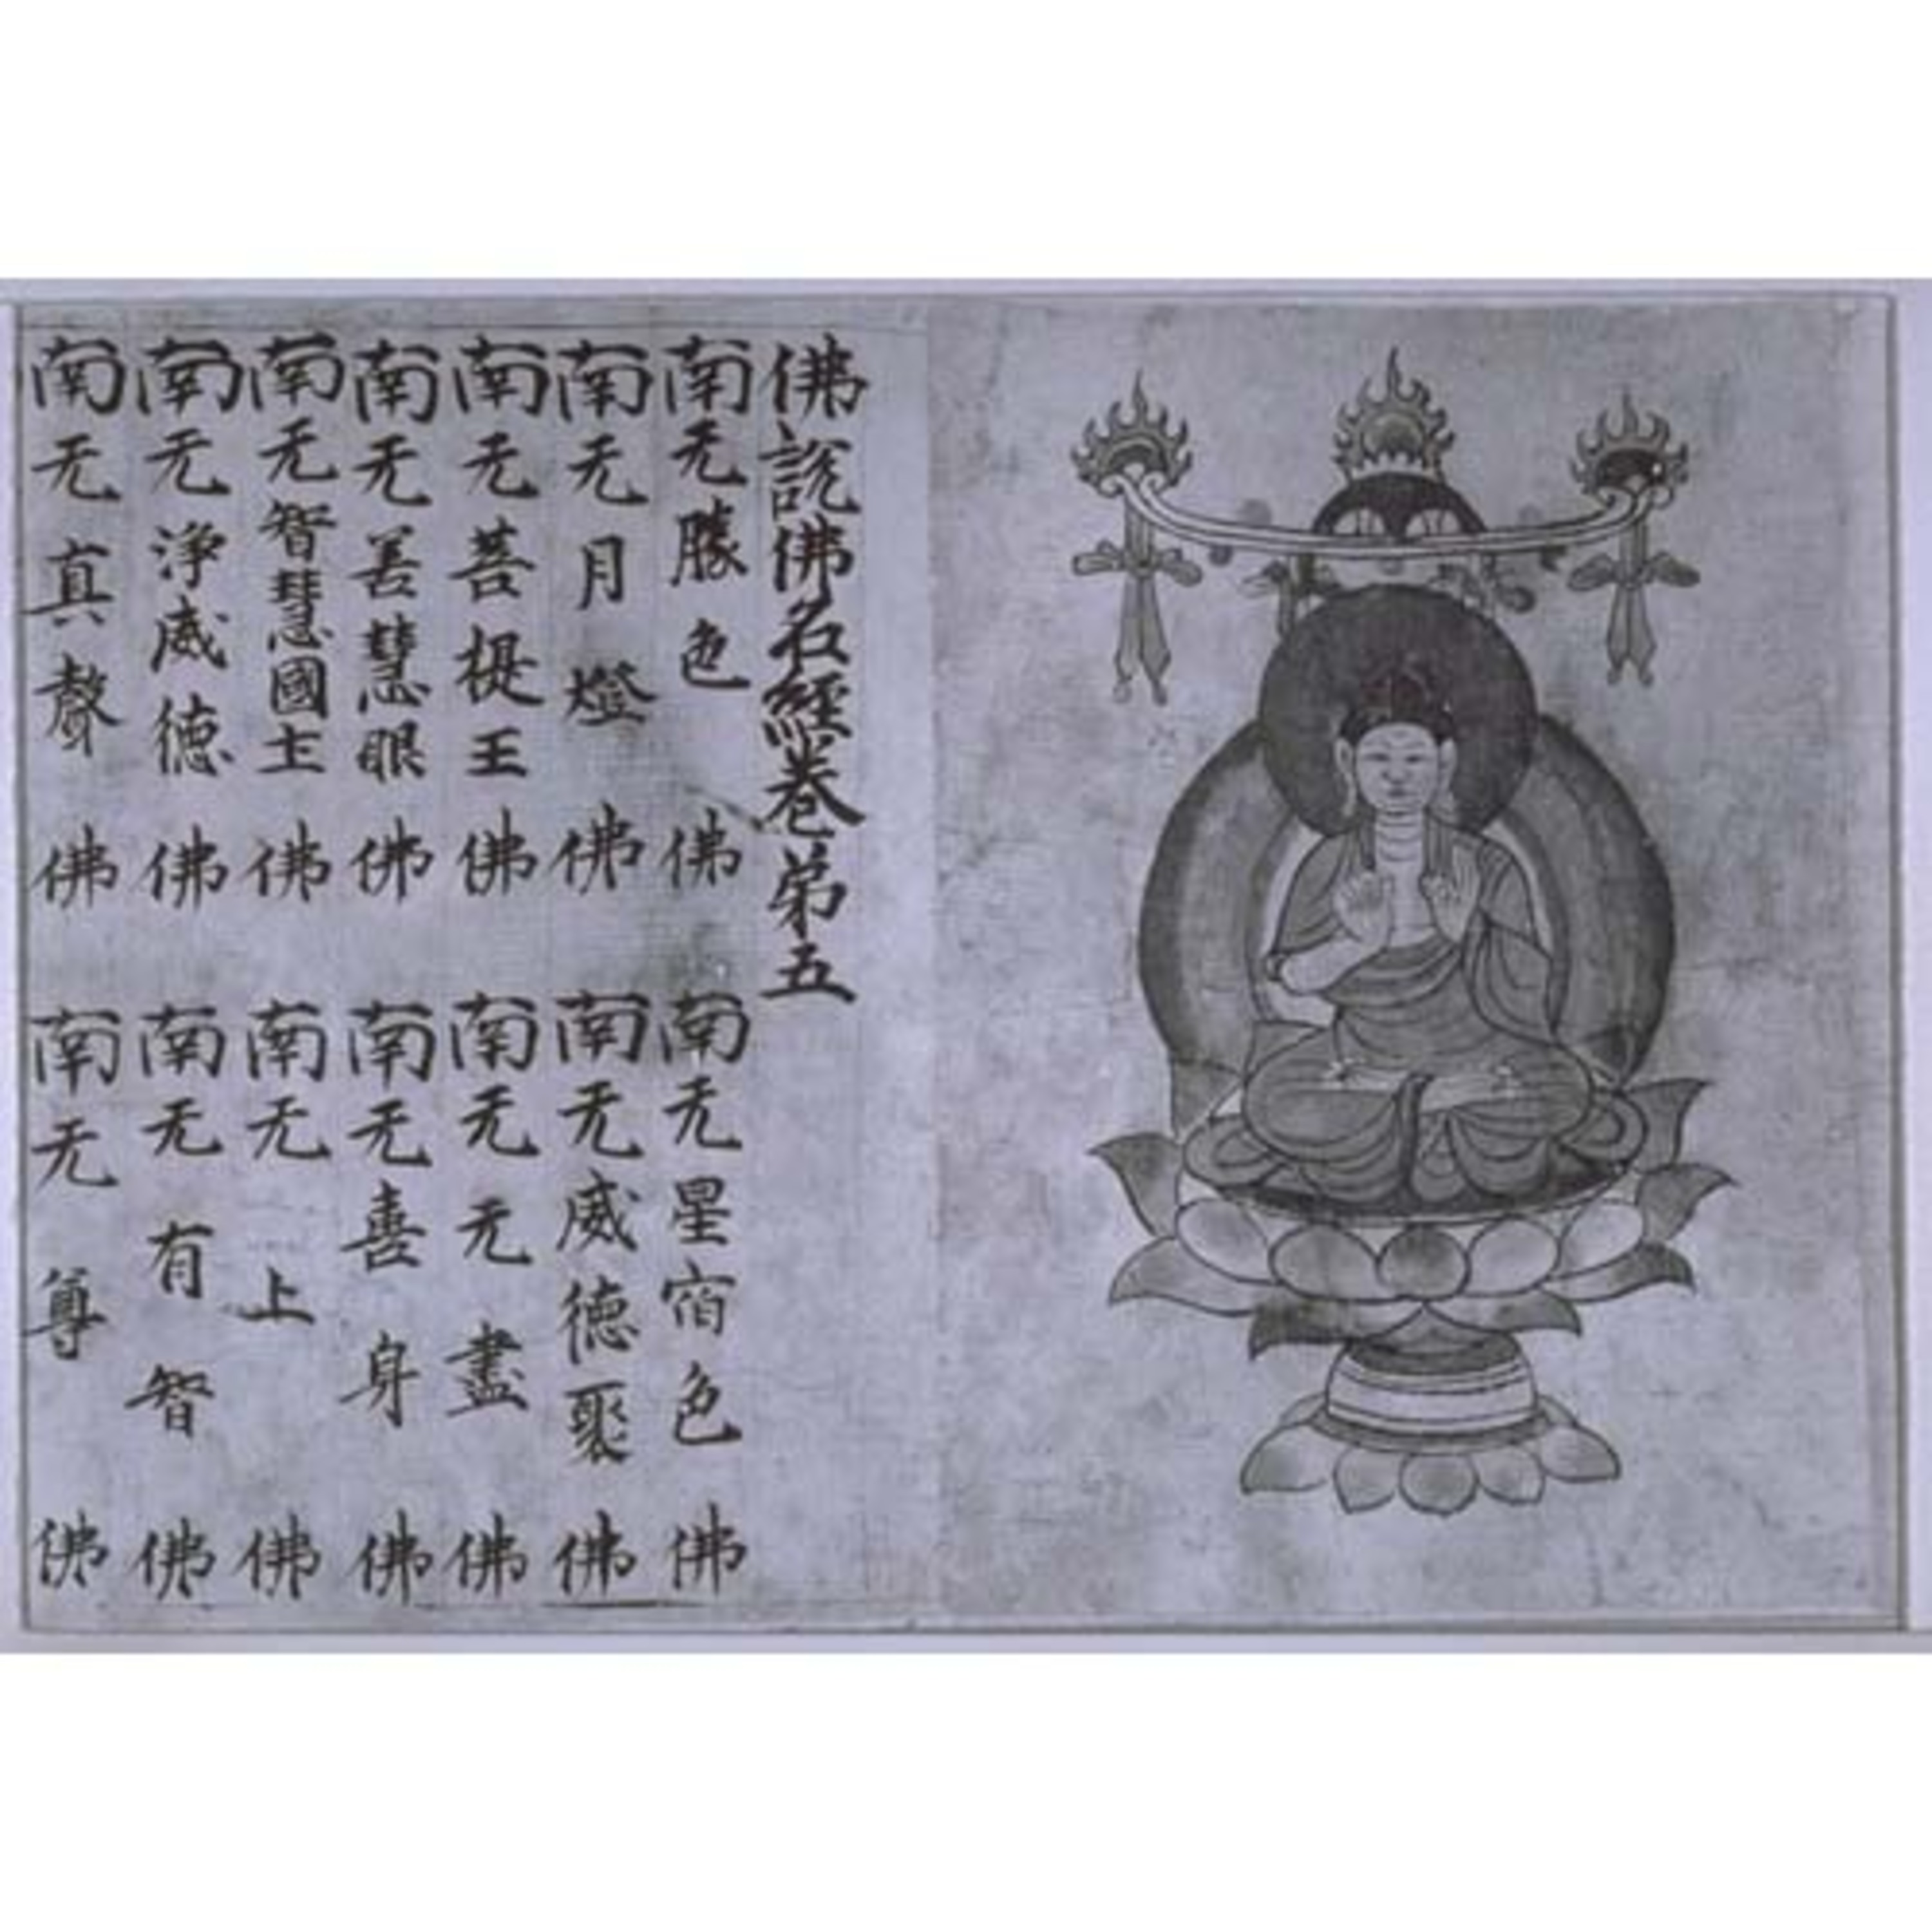 佛說佛名經卷苐五
南无勝色佛 南无星宿色佛
南无月燈佛 南无威德聚佛
南无菩提王佛 南无无盡佛
南无善慧眼佛 南无善身佛
南无智慧國土佛 南无上佛
南无淨威德佛 南无有智佛
南无真聲佛 南无尊佛